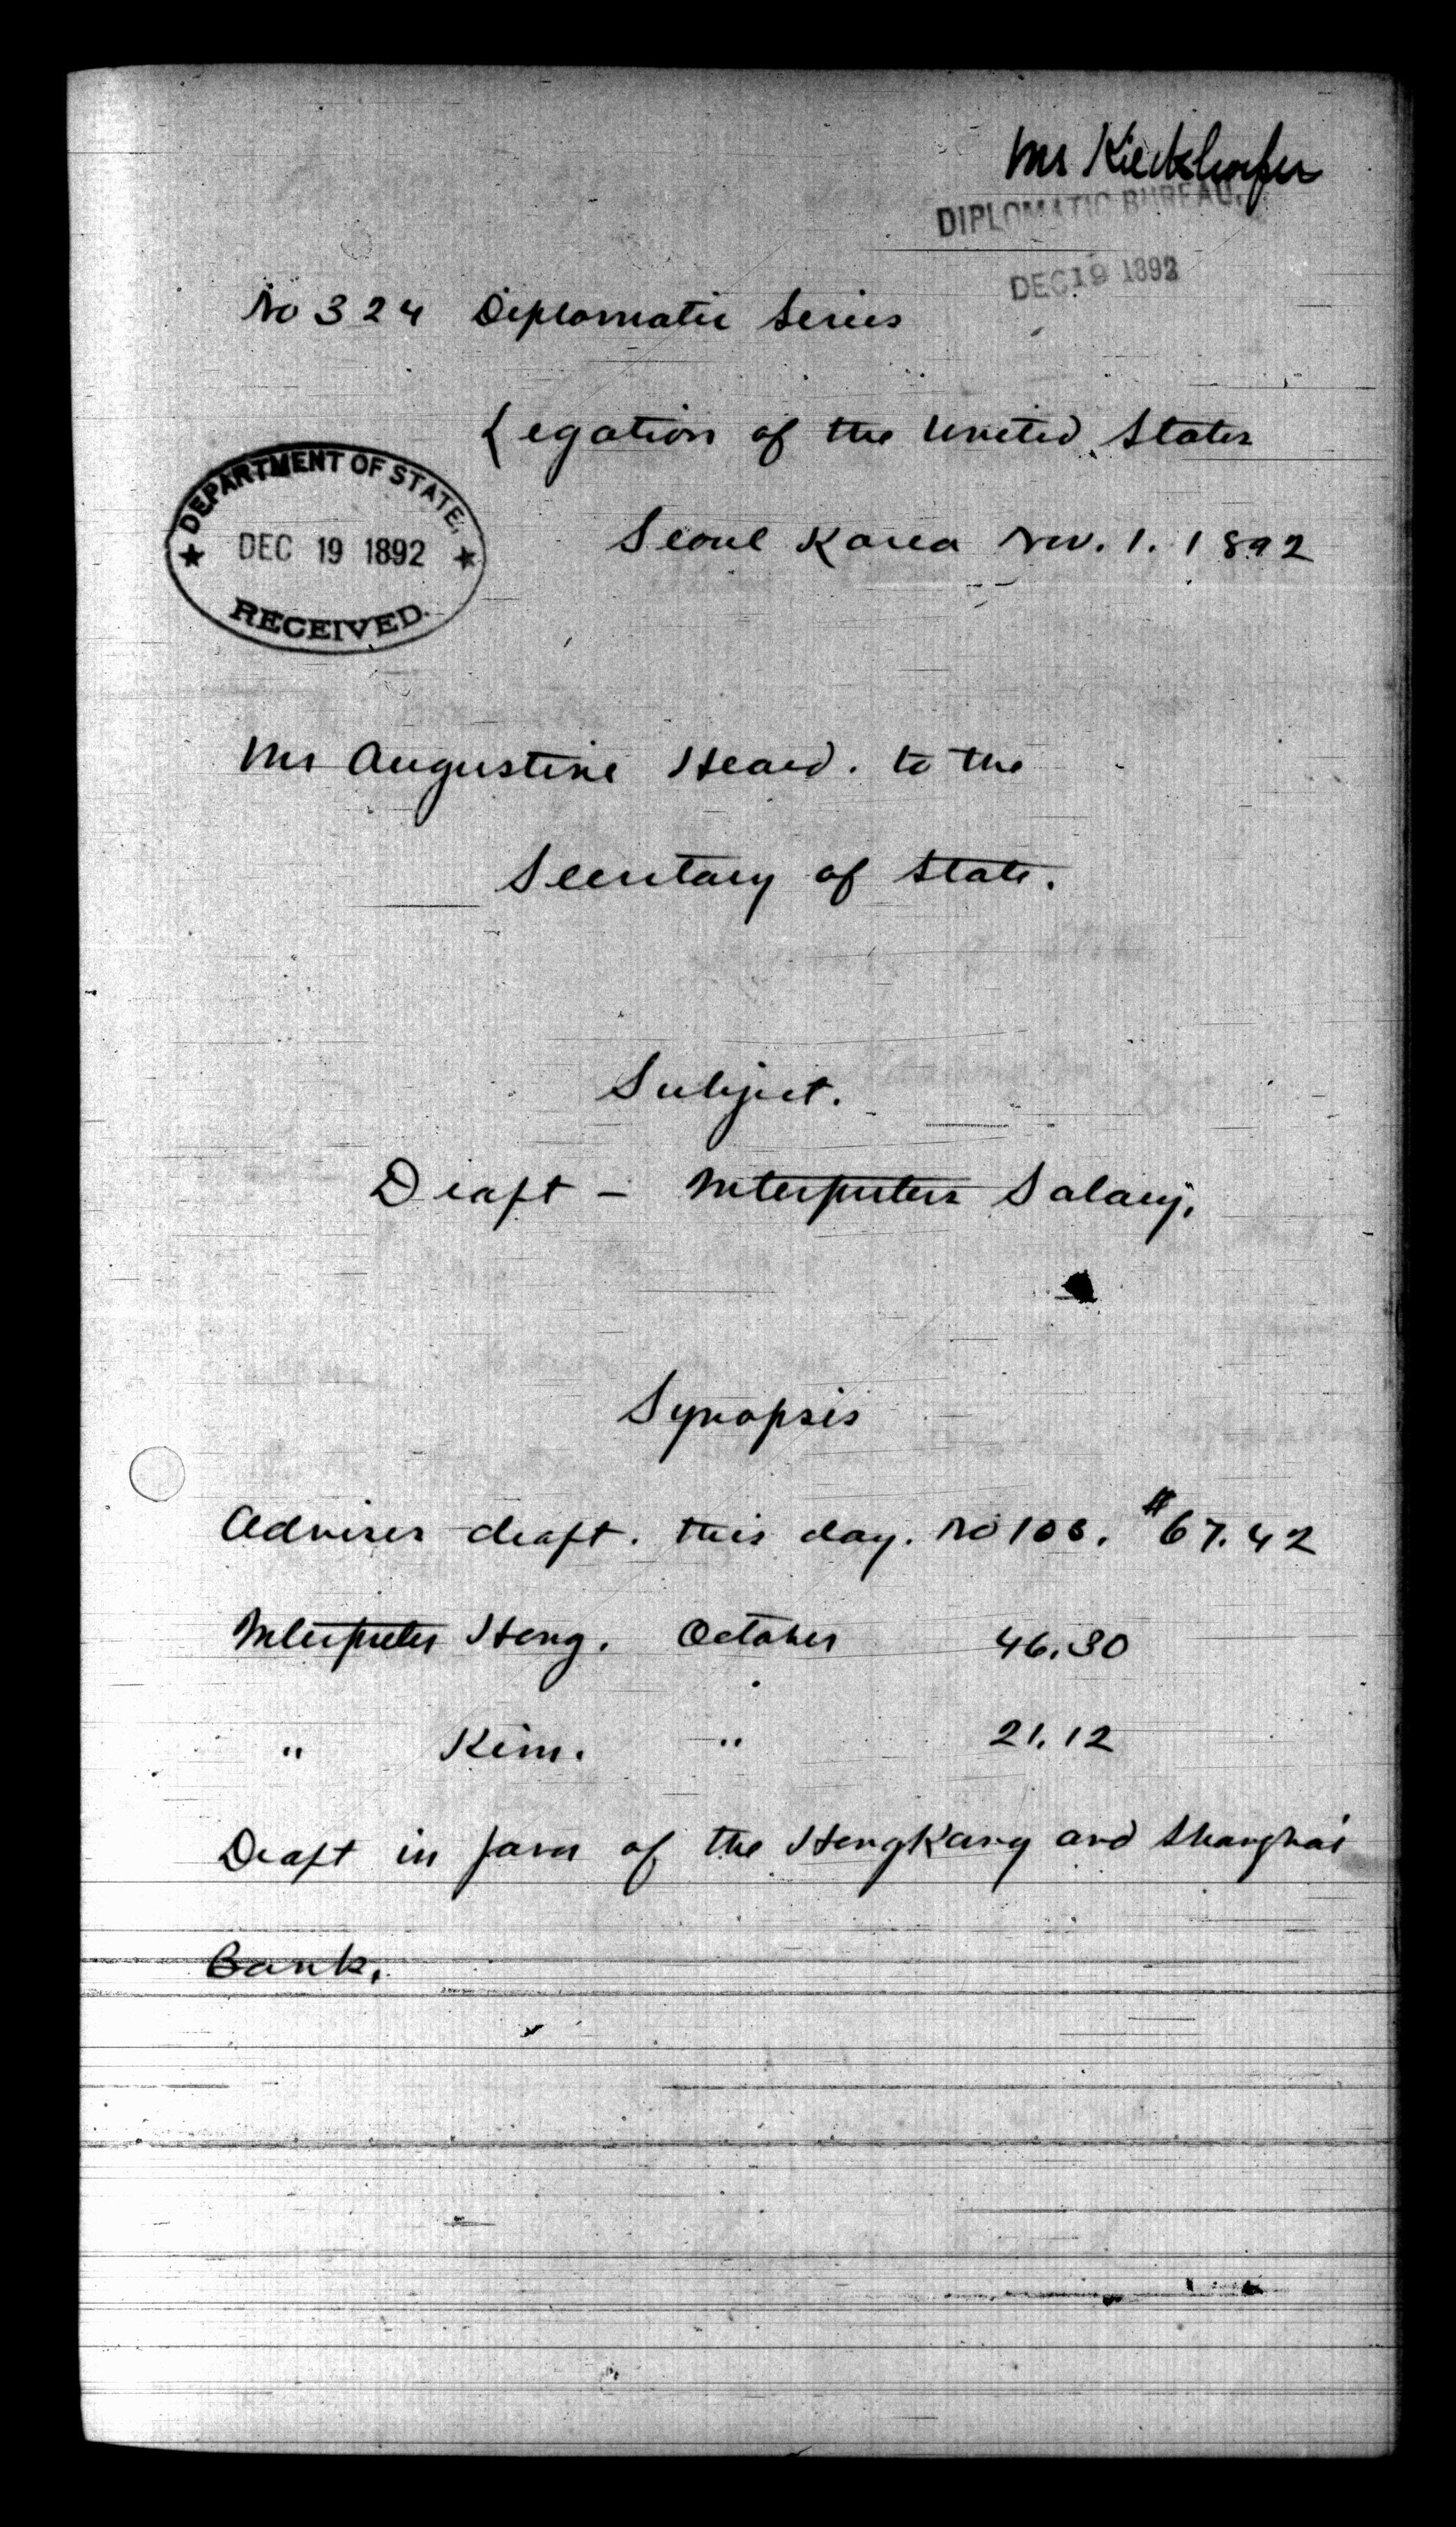 Mr Kieckhoefer
DIPLOMATIC BUREAU.
DEC 19 1892
No 324 Diplomatic Series
Legation of the United States
DEPARTMENT OF STATE,
DEC 19 1892
RECEIVED.
Seoul Korea Nov. 1. 1892
Mr Augustine Heard. to the
Secretary of State.
Subject.
Draft – Interpreters Salary,
Synopsis
Advises draft. this day. No $67.42
Interpreter Hong. October 46.30
" Kim. " 21.12
Draft in favor of the HongKong and Shanghai
Bank.